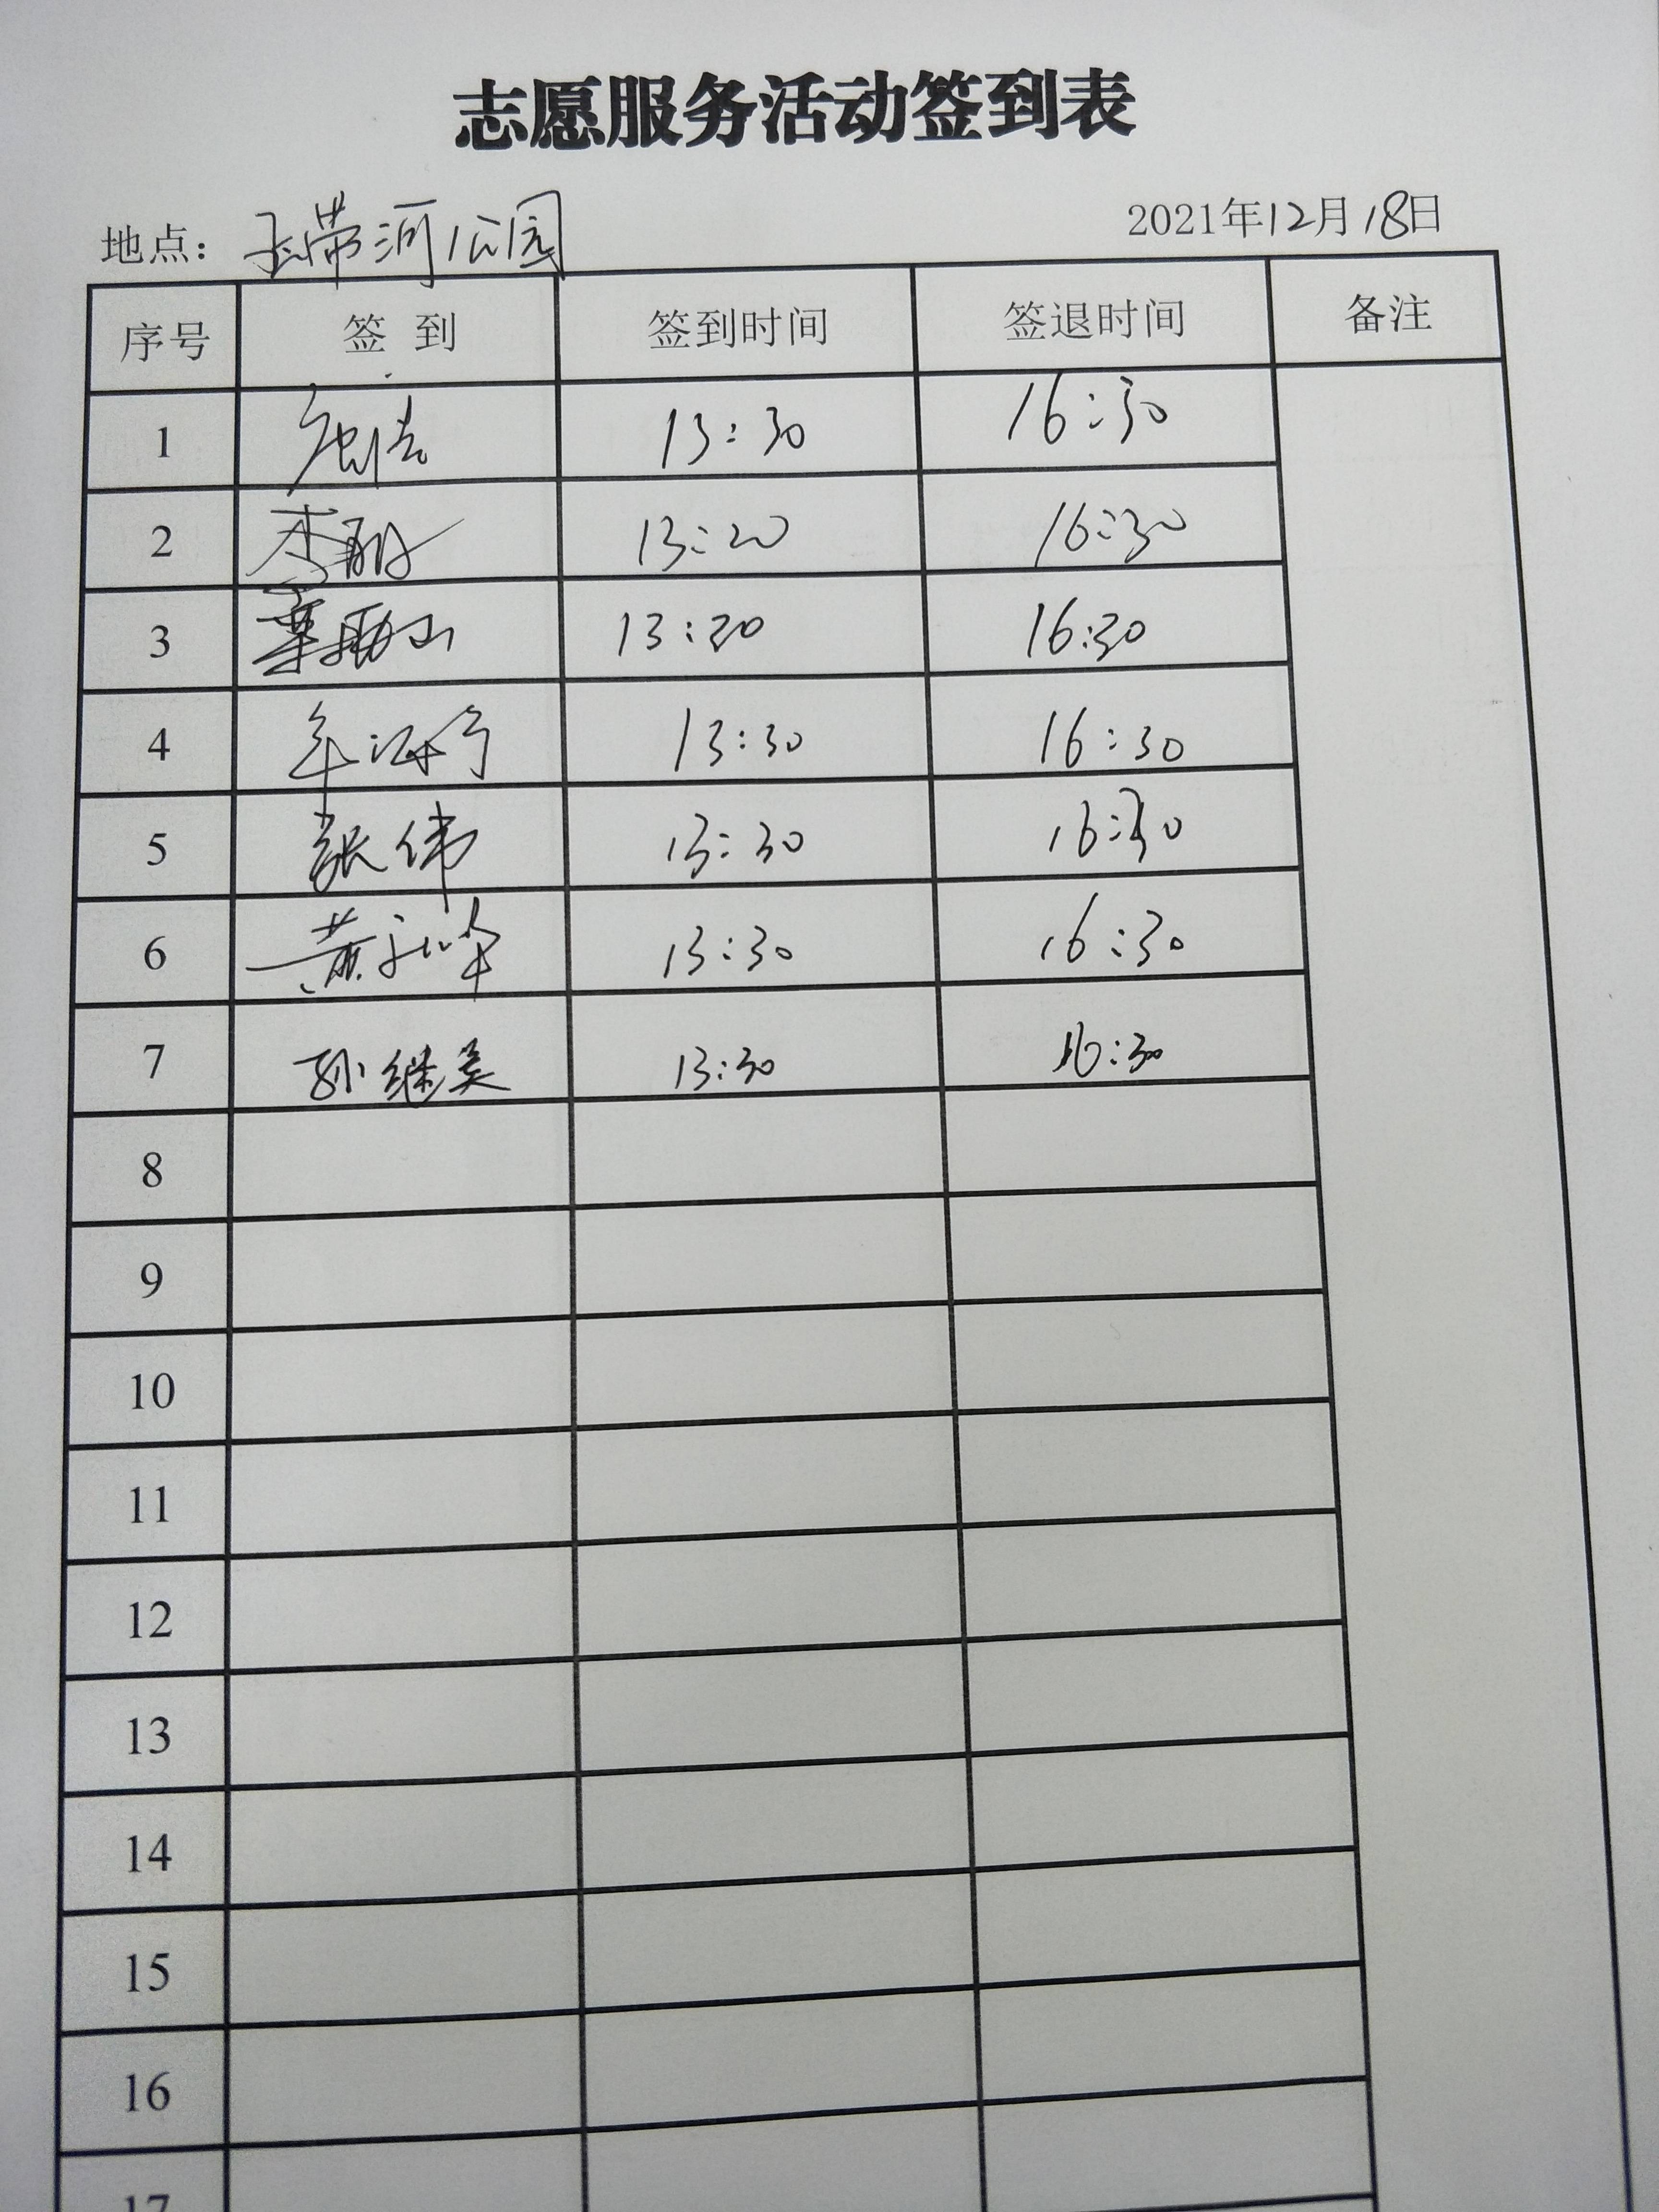 志愿服务活动签到表
地点：玉带河公园 2021年12月18日
序号 签到 签到时间 签退时间 备注
1 13:30 16:30
2 李丽 13:20 16:30
3 13:30 16:30
4 13:30 16:30
5 张伟 13:30 16:30
6 黄 13:30 16:30
7 孙继美 13:30 16:30
8
9
10
11
12
13
14
15
16
17